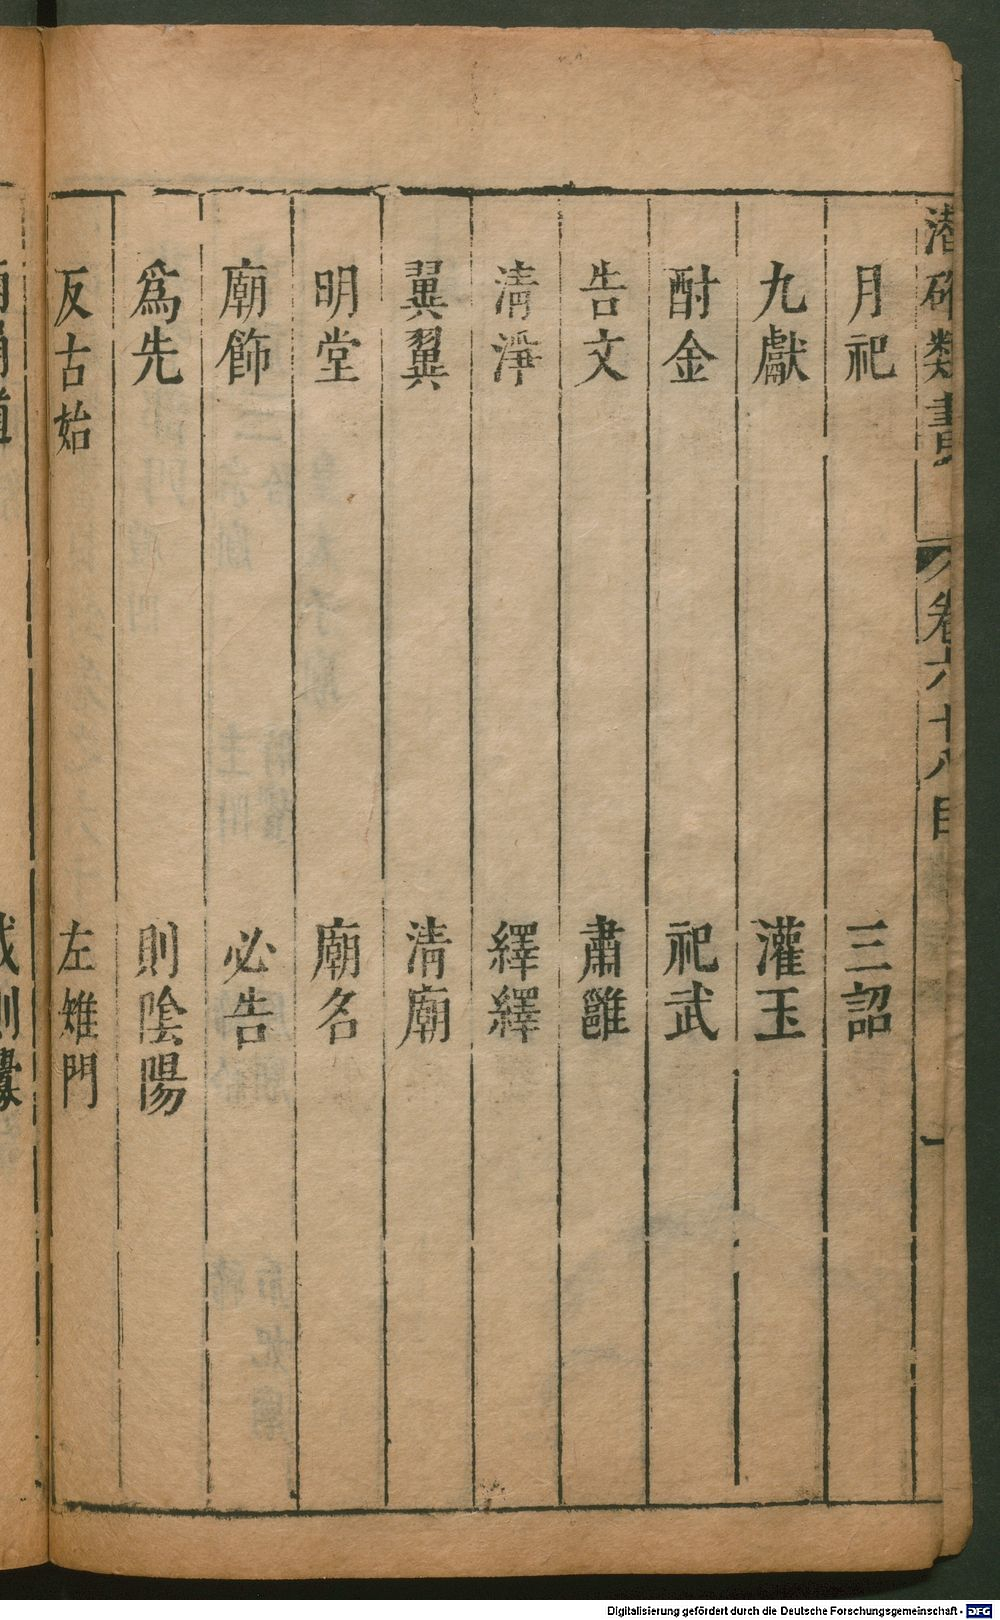 潜確類書
卷六十八目
一
月祀 三詔
九獻 灌玉
酎金 祀武
告文 肅雝
清淨 繹繹
翼翼 清廟
明堂 廟名
廟飾 必告
爲先 則陰陽
反古始 左雉門
Digitalisierung gefördert durch die Deutsche Forschungsgemeinschaft - DFG